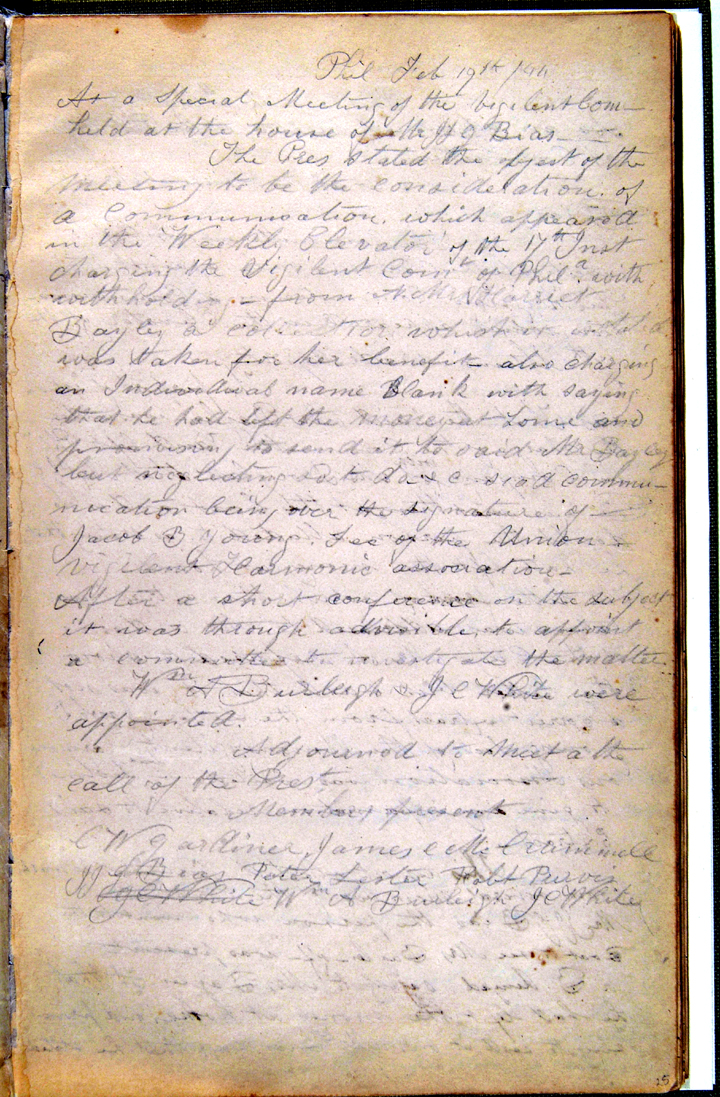 Phil Feb 19th /44
At a Special Meeting of the Vigilent Com—
held at the house of Mr J J G Bias
The Pres stated the object of the
meeting to be the consideration of
a Communication. which appeared
in the Weekly Elevator of the 17th Inst
charging the Vigilent Comt of Phila with
withholding from Harriet
Bayley a collection which
was taken for her benefit also charging
an Individual name Blank with saying
that he had left the money at home and
promising to send it to said Mr Bayley
but neglecting so to do &c said commu—
nication being over the signature of
Jacob B Young. Sec of the Union
Vigilent Harmonic association
After a short conference on the subject
it was through advisible to appoint
a committee to investigate the matter
Wm A Burleigh & J C White were
appointed.
Adjourned to Meet a the
call of the Prest
Members present
C W Gardiner, James McCrummell
J J G Bias Peter Lester Robt Purvis
J C White Wm A Burleigh J C White
25